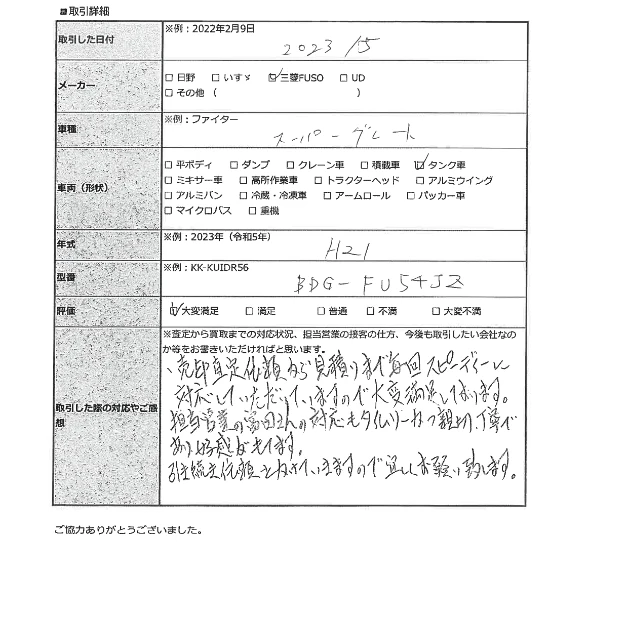 ■取引詳細
取引した日付
※例：2022年2月9日
2023 / 5
メーカー
□ 日野 □ いすゞ ☑ 三菱FUSO □ UD
□ その他（ ）
車種
※例：ファイター
スーパーグレート
車両（形状）
□ 平ボディ □ ダンプ □ クレーン車 □ 積載車 ☑ タンク車
□ ミキサー車 □ 高所作業車 □ トラクターヘッド □ アルミウイング
□ アルミバン □ 冷蔵・冷凍車 □ アームロール □ パッカー車
□ マイクロバス □ 重機
年式
※例：2023年（令和5年）
H21
型番
※例：KK-KUIDR56
BDG-FU54JZ
評価
☑ 大変満足 □ 満足 □ 普通 □ 不満 □ 大変不満
取引した際の対応やご感想
※査定から買取までの対応状況、担当営業の接客の仕方、今後も取引したい会社なの
か等をお書きいただければと思います。
査定依頼から見積りまで毎回スピーディーに
対応していただいていますので大変満足しております。
担当営業の富田さんの対応もタイムリーかつ親切、丁寧で
あり好感がもてます。
引き続き依頼と ますので宜しくお願い致します。
ご協力ありがとうございました。